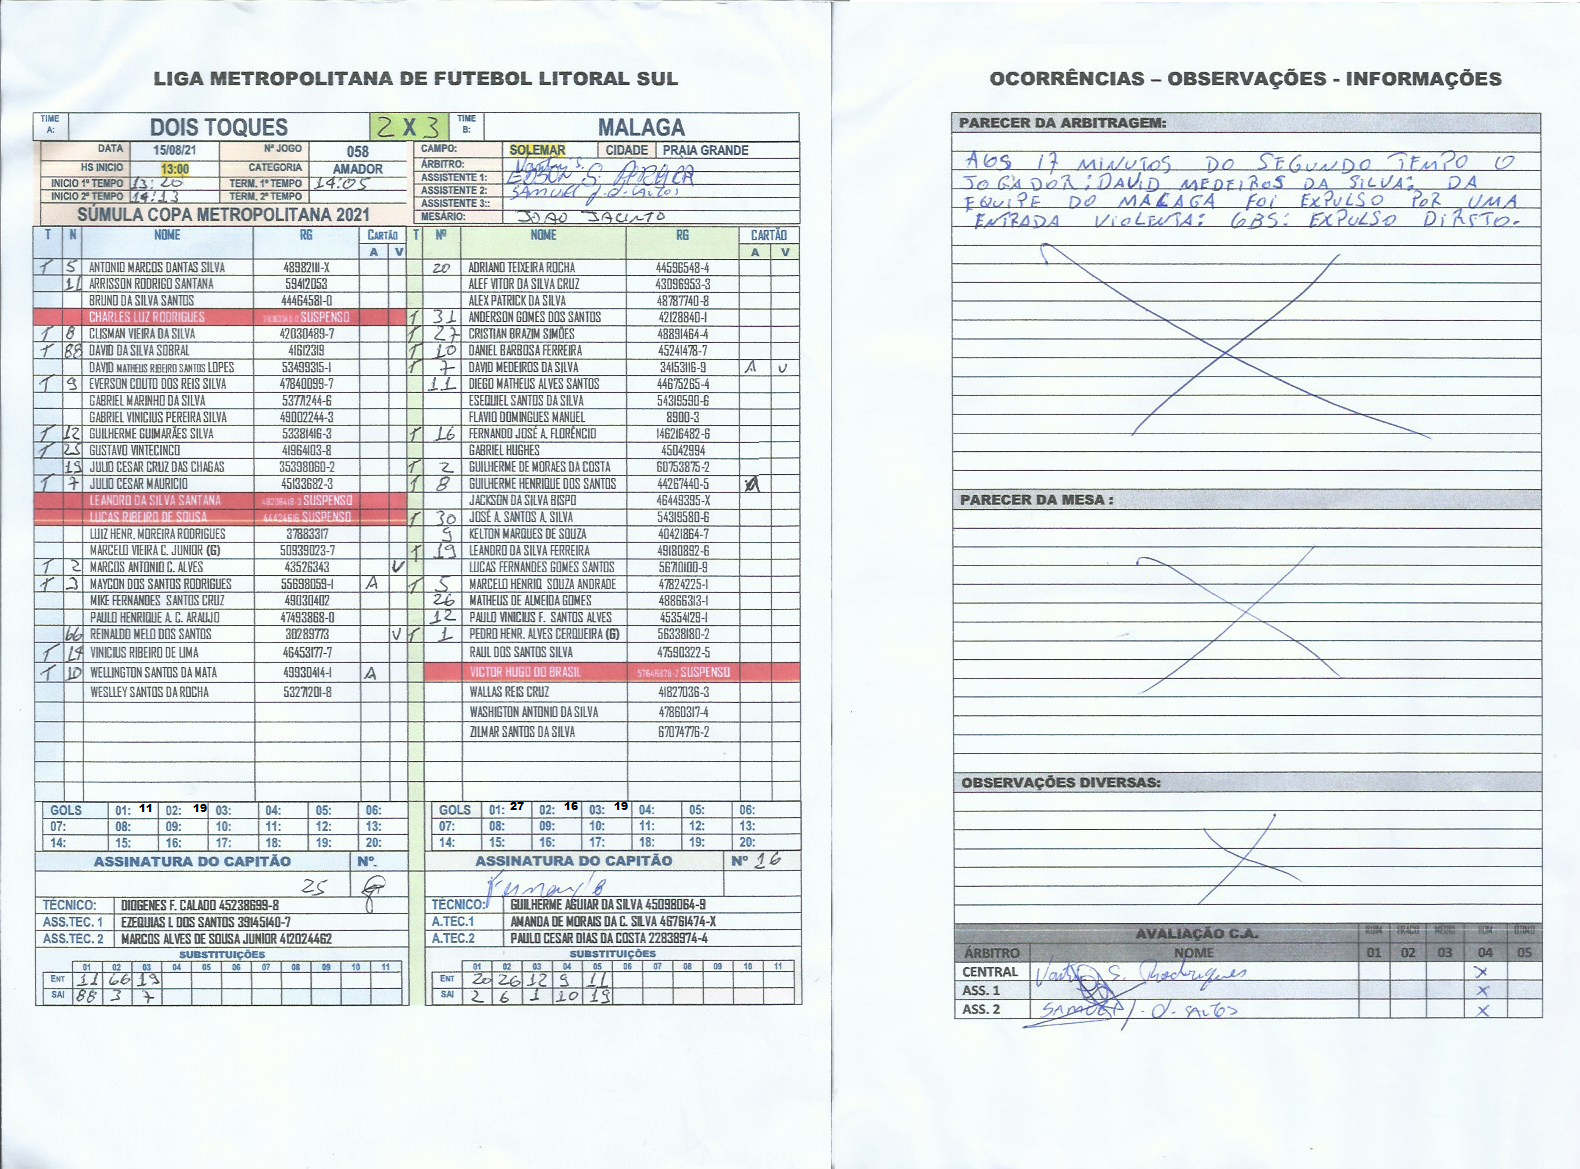 LIGA METROPOLITANA DE FUTEBOL LITORAL SUL
TIME A: DOIS TOQUES 2 X 3 TIME B: MALAGA
DATA 15/08/21 Nº JOGO 058 CAMPO: SOLEMAR CIDADE PRAIA GRANDE
HS INICIO 13:00 CATEGORIA AMADOR ÁRBITRO:
INICIO 1º TEMPO 13:20 TERM. 1º TEMPO 14:05 ASSISTENTE 1: EDSON S.
INICIO 2º TEMPO 14:13 TERM. 2º TEMPO ASSISTENTE 2: SAMUEL J. d. SANTOS
ASSISTENTE 3::
SÚMULA COPA METROPOLITANA 2021 MESÁRIO: JOAO JACINTO
T N NOME RG CARTÃO A V T Nº NOME RG CARTÃO A V
T 5 ANTONIO MARCOS DANTAS SILVA 48982111-X 20 ADRIANO TEIXEIRA ROCHA 44596548-4
11 ARRISSON RODRIGO SANTANA 59412053 ALEF VITOR DA SILVA CRUZ 43096953-3
BRUNO DA SILVA SANTOS 44464581-0 ALEX PATRICK DA SILVA 48787740-8
CHARLES LUZ RODRIGUES SUSPENSO T 31 ANDERSON GOMES DOS SANTOS 42128840-1
T 8 CLISMAN VIEIRA DA SILVA 42030489-7 T 27 CRISTIAN BRAZIM SIMÕES 48891464-4
T 88 DAVID DA SILVA SOBRAL 41612319 T 10 DANIEL BARBOSA FERREIRA 45241478-7
DAVID MATHEUS RIBEIRO SANTOS LOPES 53499315-1 T 7 DAVID MEDEIROS DA SILVA 34153116-9 A V
T 9 EVERSON COUTO DOS REIS SILVA 47840099-7 11 DIEGO MATHEUS ALVES SANTOS 44675265-4
GABRIEL MARINHO DA SILVA 53771244-6 ESEQUIEL SANTOS DA SILVA 54319590-6
GABRIEL VINICIUS PEREIRA SILVA 49002244-3 FLAVIO DOMINGUES MANUEL 8900-3
T 12 GUILHERME GUIMARÃES SILVA 53381416-3 T 16 FERNANDO JOSÉ A. FLORÊNCIO 146216482-6
T 25 GUSTAVO VINTECINCO 41964103-8 GABRIEL HUGHES 45042994
19 JULIO CESAR CRUZ DAS CHAGAS 35398060-2 T 2 GUILHERME DE MORAES DA COSTA 60753875-2
T 7 JULIO CESAR MAURICIO 45133682-3 T 8 GUILHERME HENRIQUE DOS SANTOS 44267440-5 A
LEANDRO DA SILVA SANTANA SUSPENSO JACKSON DA SILVA BISPO 46449395-X
LUCAS RIBEIRO DE SOUSA SUSPENSO T 30 JOSÉ A. SANTOS A. SILVA 54319580-6
LUIZ HENR. MOREIRA RODRIGUES 37883317 9 KELTON MARQUES DE SOUZA 40421864-7
MARCELO VIEIRA C. JUNIOR (G) 50939023-7 T 19 LEANDRO DA SILVA FERREIRA 49180892-6
T 2 MARCOS ANTONIO C. ALVES 43526343 V LUCAS FERNANDES GOMES SANTOS 56710100-9
T 3 MAYCON DOS SANTOS RODRIGUES 55698059-1 A T 5 MARCELO HENRIQ. SOUZA ANDRADE 47824225-1
MIKE FERNANDES SANTOS CRUZ 49030402 26 MATHEUS DE ALMEIDA GOMES 48866313-1
PAULO HENRIQUE A. C. ARAUJO 47493868-0 12 PAULO VINICIUS F. SANTOS ALVES 45354129-1
66 REINALDO MELO DOS SANTOS 30289773 V T 1 PEDRO HENR. ALVES CERQUEIRA (G) 56338180-2
T 19 VINICIUS RIBEIRO DE LIMA 46453177-7 RAUL DOS SANTOS SILVA 47590322-5
T 10 WELLINGTON SANTOS DA MATA 49930414-1 A VICTOR HUGO DO BRASIL SUSPENSO
WESLLEY SANTOS DA ROCHA 53271201-8 WALLAS REIS CRUZ 41827036-3
WASHIGTON ANTONIO DA SILVA 47860317-4
ZILMAR SANTOS DA SILVA 67074776-2
GOLS 01: 11 02: 19 03: 04: 05: 06: GOLS 01: 27 02: 16 03: 19 04: 05: 06:
07: 08: 09: 10: 11: 12: 13: 07: 08: 09: 10: 11: 12: 13:
14: 15: 16: 17: 18: 19: 20: 14: 15: 16: 17: 18: 19: 20:
ASSINATURA DO CAPITÃO Nº. ASSINATURA DO CAPITÃO Nº 16
25
TÉCNICO: DIOGENES F. CALADO 45238699-8 TÉCNICO: GUILHERME AGUIAR DA SILVA 45098064-9
ASS.TEC. 1 EZEQUIAS L DOS SANTOS 39145140-7 A.TEC.1 AMANDA DE MORAIS DA C. SILVA 46761474-X
ASS.TEC. 2 MARCOS ALVES DE SOUSA JUNIOR 412024462 A.TEC.2 PAULO CESAR DIAS DA COSTA 22838974-4
SUBSTITUIÇÕES SUBSTITUIÇÕES
01 02 03 04 05 06 07 08 09 10 11 01 02 03 04 05 06 07 08 09 10 11
ENT 11 66 19 ENT 20 26 12 9 11
SAI 88 3 7 SAI 2 6 1 10 19
OCORRÊNCIAS – OBSERVAÇÕES - INFORMAÇÕES
PARECER DA ARBITRAGEM:
AOS 17 MINUTOS DO SEGUNDO TEMPO O
JOGADOR: DAVID MEDEIROS DA SILVA: DA
EQUIPE DO MALAGA FOI EXPULSO POR UMA
ENTRADA VIOLENTA: OBS: EXPULSO DIRETO.
PARECER DA MESA :
OBSERVAÇÕES DIVERSAS:
AVALIAÇÃO C.A. RUIM FRACO MÉDIO BOM ÓTIMO
ÁRBITRO NOME 01 02 03 04 05
CENTRAL S. Rodrigues X
ASS. 1 X
ASS. 2 SAMUEL J. d. SANTOS X